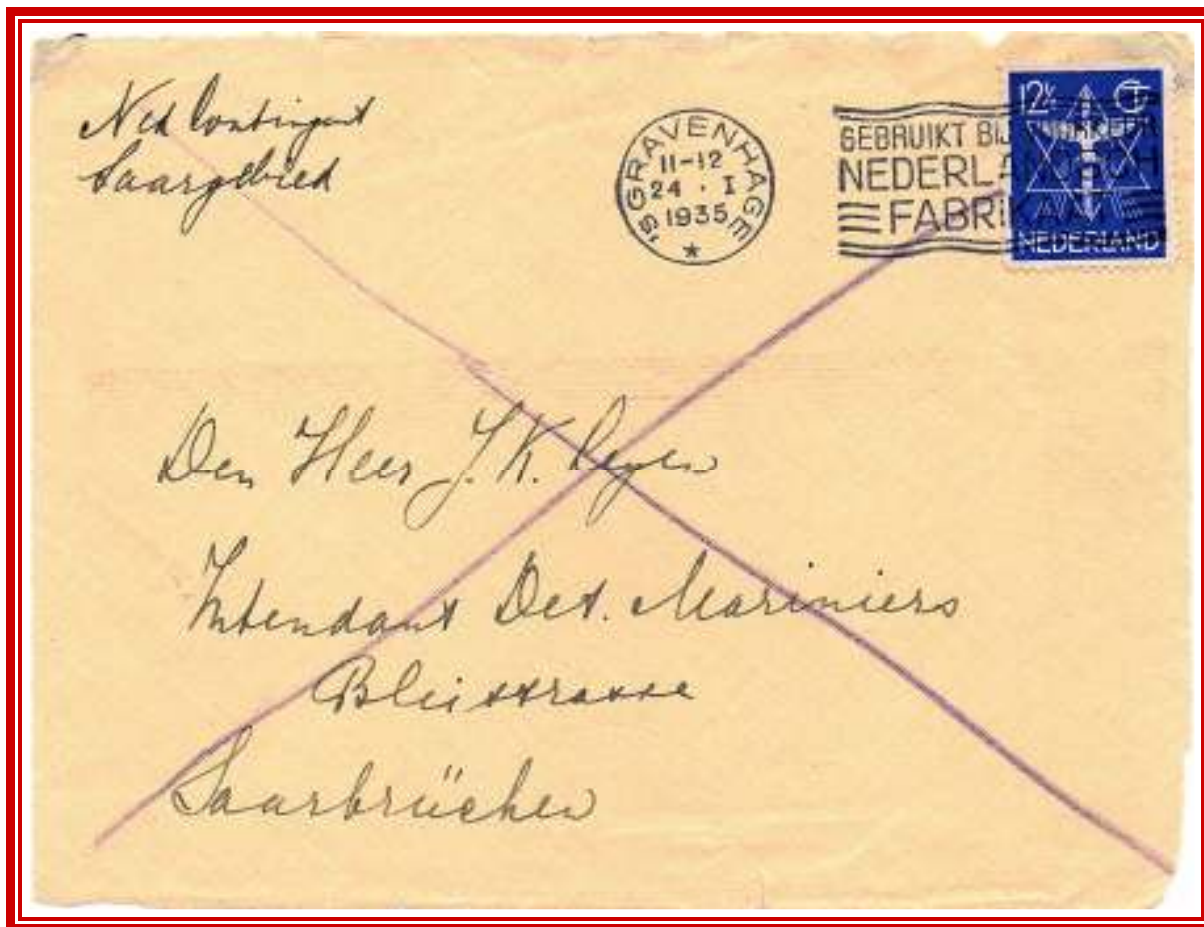 Ned Contingent
Saargebied
'SGRAVENHAGE
11-12
24 · I
1935
GEBRUIKT BIJ
NEDERL
FABRIK
12½ CT
NEDERLAND
Den Heer J. K.
Intendant Det. Mariniers
Bleistrasse
Saarbrücken